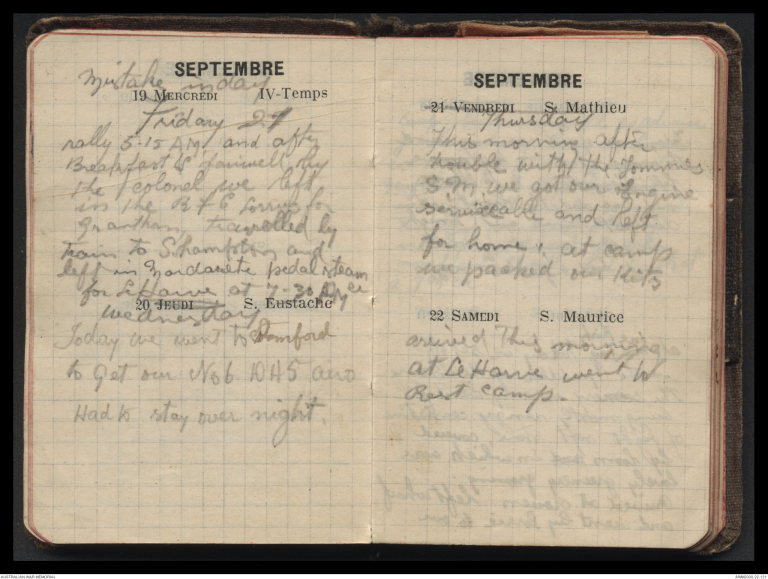 SEPTEMBRE
Mistake in day
19 MERCREDI IV-Temps
Friday 21
rally 5-15 AM and after
Breakfast & fairwell by
the colonel we left
in the R F C Lorrys for
Grantham, travelled by
train to S.hampton and
left in pedal steam
for LeHavre at 7-30 PM
20 JEUDI S. Eustache
Wednesday
Today we went to Stamford
to get our No 6 DH5 aero
Had to stay over night.
SEPTEMBRE
21 VENDREDI S. Mathieu
Thursday
This morning after
trouble with the Tommies
S M. we got our Engine
serviceable and left
for home. at camp
we packed our Kits
22 SAMEDI S. Maurice
arrived This morning
at LeHarve went to
Rest camp.
AUSTRALIAN WAR MEMORIAL